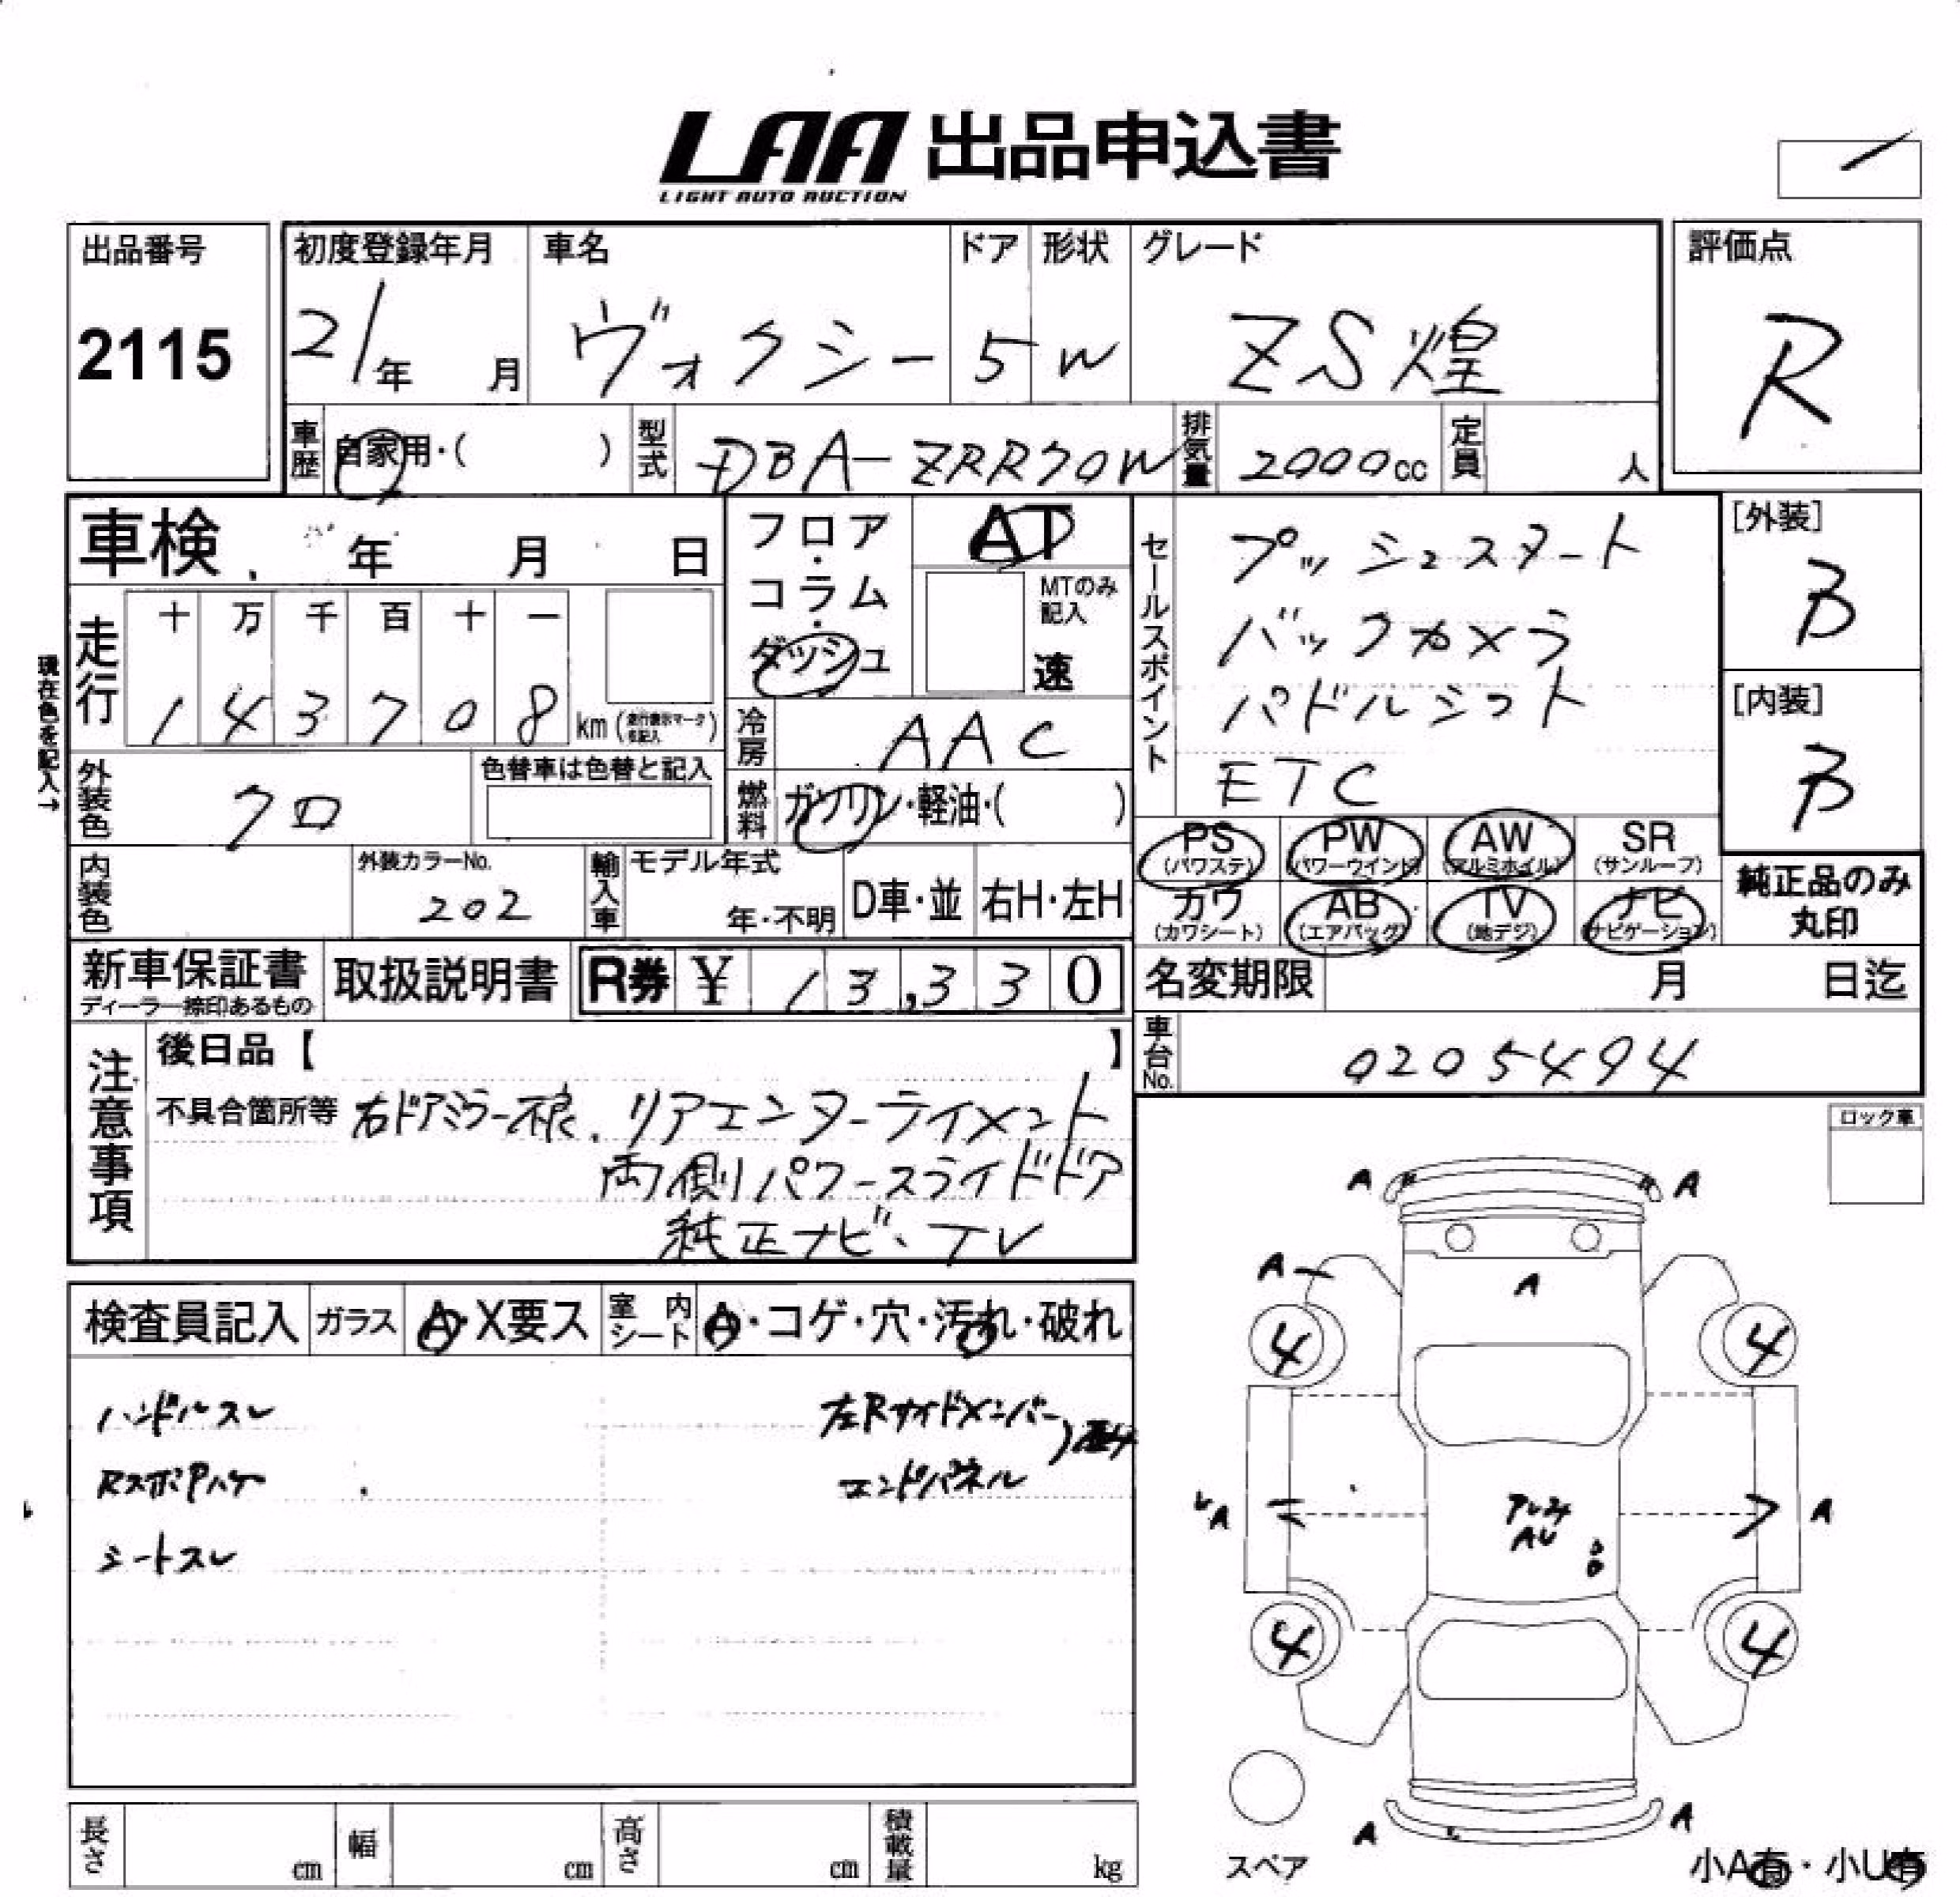 LAA 出品申込書
LIGHT AUTO AUCTION
出品番号
2115
初度登録年月
21年 月
車名
ヴォクシー
ドア
5
形状
W
グレード
ZS煌
評価点
R
車歴 自家用・( )
型式 DBA-ZRR70W
排気量 2000cc
定員 人
車検 年 月 日
フロア・コラム・ダッシュ
AT
MTのみ記入
速
セールスポイント
プッシュスタート
バックカメラ
パドルシフト
ETC
[外装]
B
[内装]
B
現在色を記入→
走行
十 万 千 百 十 一
1 4 3 7 0 8 km (走行表示マーク要記入)
冷房 AAC
外装色 クロ
色替車は色替と記入
燃料 ガソリン・軽油・( )
PS (パワステ)
PW (パワーウインド)
AW (アルミホイル)
SR (サンルーフ)
カワ (カワシート)
AB (エアバッグ)
TV (地デジ)
ナビ (ナビゲーション)
純正品のみ
丸印
内装色
外装カラーNo.
202
輸入車
モデル年式
年・不明
D車・並
右H・左H
新車保証書
ディーラー捺印あるもの
取扱説明書
R券 ¥ 13,330
名変期限 月 日迄
車台No. 0205494
注意事項
後日品【 】
不具合箇所等 右ドアミラー不良、リアエンターテイメント
両側パワースライドドア
純正ナビ、TV
ロック車
検査員記入
ガラス A・X要ス
室内シート A・コゲ・穴・汚れ・破れ
ハンドルスレ
Rスポアハゲ
シートスレ
左Rサイドメンバー
エンドパネル
A A
A A
4 4
A A
AU
4 4
A A
スペア
小A有・小U有
長さ cm
幅 cm
高さ cm
積載量 kg